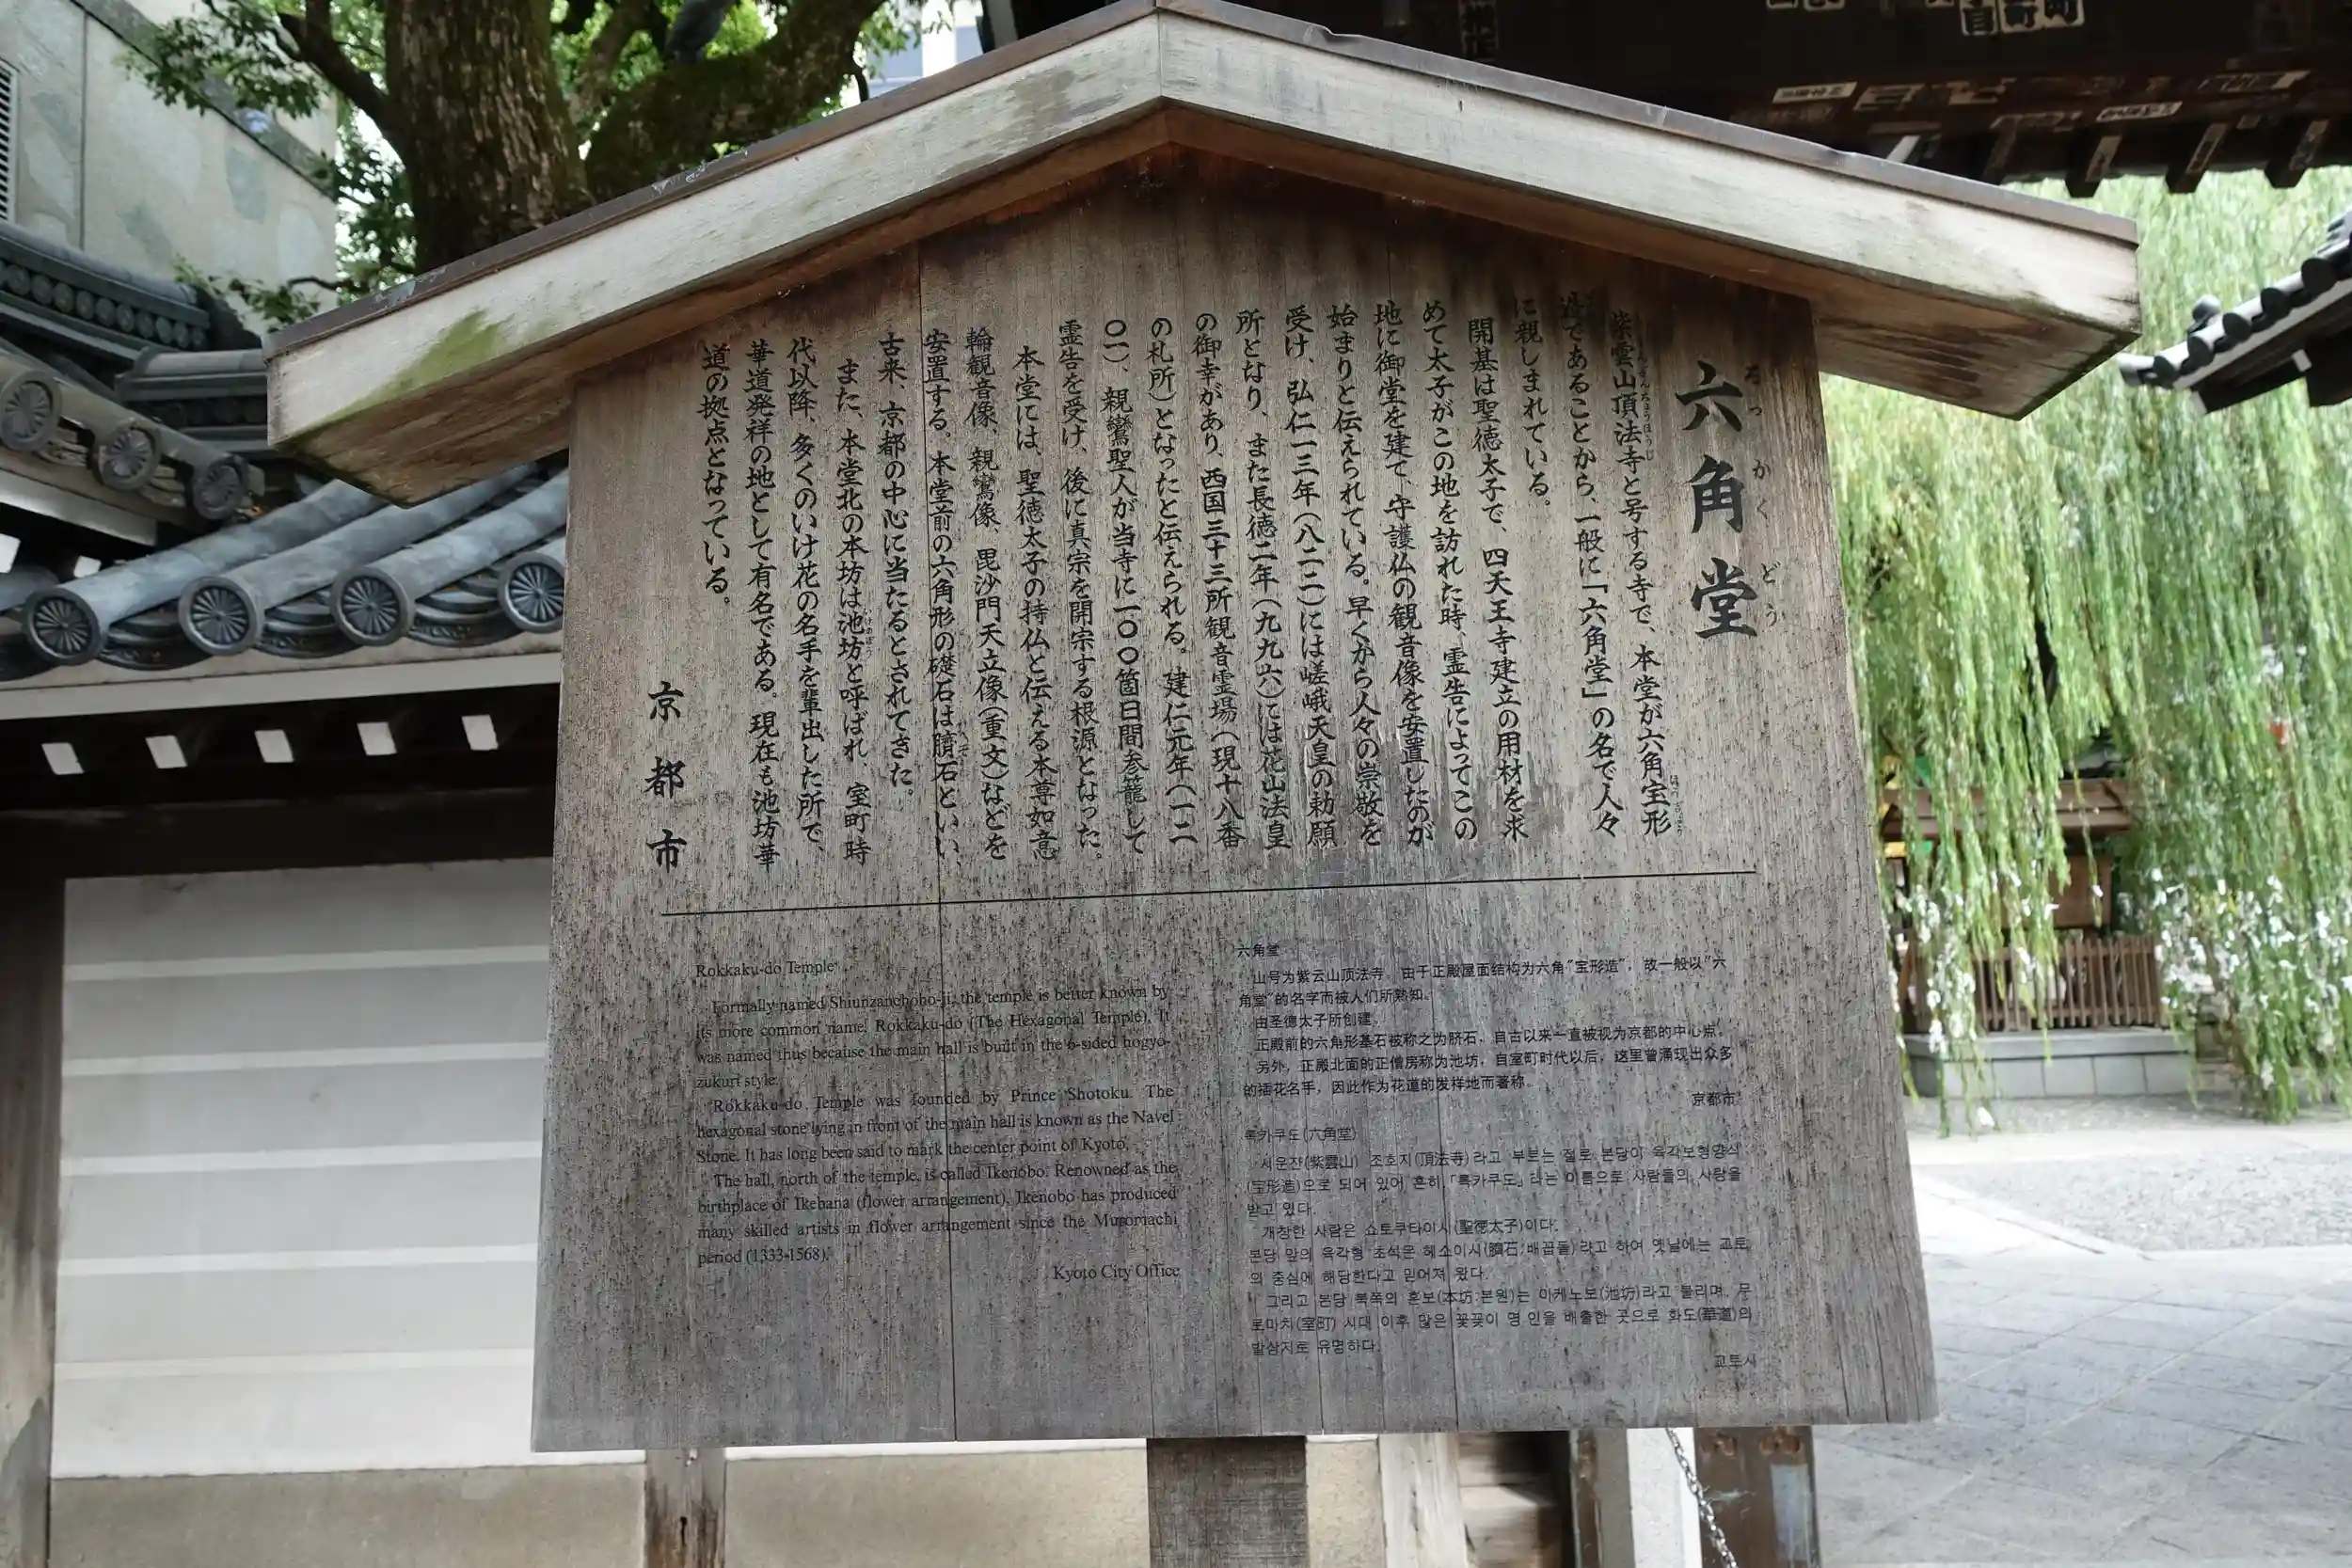 六角堂
ろっかくどう
紫雲山頂法寺と号する寺で、本堂が六角宝形
造であることから、一般に「六角堂」の名で人々
に親しまれている。
開基は聖徳太子で、四天王寺建立の用材を求
めて太子がこの地を訪れた時、霊告によってこの
地に御堂を建て、守護仏の観音像を安置したのが
始まりと伝えられている。早くから人々の崇敬を
受け、弘仁一三年(八二二)には嵯峨天皇の勅願
所となり、また長徳二年(九九六)には花山法皇
の御幸があり、西国三十三所観音霊場(現十八番
の札所)となったと伝えられる。建仁元年(一二
〇一)、親鸞聖人が当寺に一〇〇箇日間参籠して
霊告を受け、後に真宗を開宗する根源となった。
本堂には、聖徳太子の持仏と伝える本尊如意
輪観音像、親鸞像、毘沙門天立像(重文)などを
安置する。本堂前の六角形の礎石は臍石といい、
古来、京都の中心に当たるとされてきた。
また、本堂北の本坊は池坊と呼ばれ、室町時
代以降、多くのいけ花の名手を輩出した所で、
華道発祥の地として有名である。現在も池坊華
道の拠点となっている。
京都市
Rokkaku-do Temple
Formally named Shiunzanchoho-ji, the temple is better known by
its more common name, Rokkaku-do (The Hexagonal Temple). It
was named thus because the main hall is built in the 6-sided hogyo-
zukuri style.
Rokkaku-do Temple was founded by Prince Shotoku. The
hexagonal stone lying in front of the main hall is known as the Navel
Stone. It has long been said to mark the center point of Kyoto.
The hall, north of the temple, is called Ikenobo. Renowned as the
birthplace of Ikebana (flower arrangement), Ikenobo has produced
many skilled artists in flower arrangement since the Muromachi
period (1333-1568).
Kyoto City Office
六角堂
山号为紫云山顶法寺。由于正殿屋面结构为六角"宝形造"，故一般以"六
角堂"的名字而被人们所熟知。
由圣德太子所创建。
正殿前的六角形基石被称之为脐石，自古以来一直被视为京都的中心点。
另外，正殿北面的正僧房称为池坊，自室町时代以后，这里曾涌现出众多
的插花名手，因此作为花道的发祥地而著称。
京都市
록카쿠도(六角堂)
시운잔(紫雲山) 조호지(頂法寺)라고 부르는 절로 본당이 육각보형양식
(宝形造)으로 되어 있어 흔히「록카쿠도」라는 이름으로 사람들의 사랑을
받고 있다.
개창한 사람은 쇼토쿠타이시(聖徳太子)이다.
본당 앞의 육각형 초석은 헤소이시(臍石:배꼽돌)라고 하여 옛날에는 교토
의 중심에 해당한다고 믿어져 왔다.
그리고 본당 북쪽의 혼보(本坊:본원)는 이케노보(池坊)라고 불리며, 무
로마치(室町) 시대 이후 많은 꽃꽂이 명인을 배출한 곳으로 화도(華道)의
발상지로 유명하다.
교토시